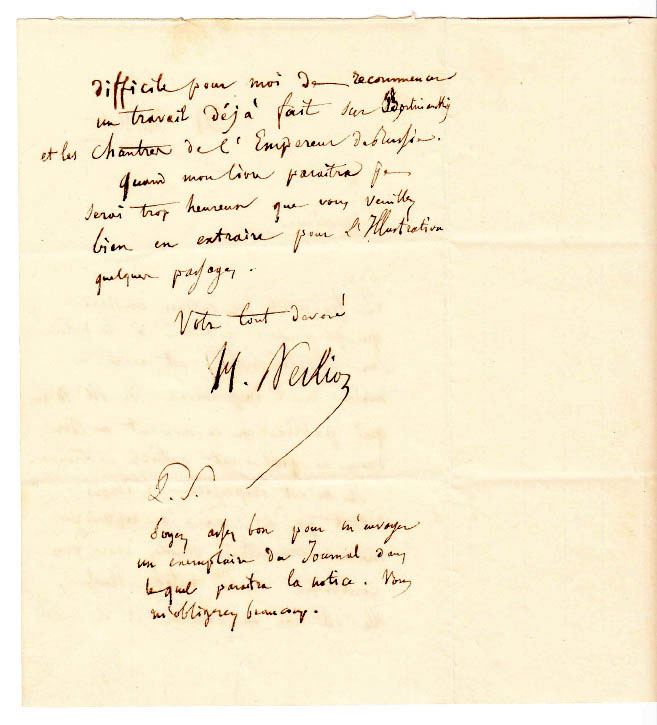 difficile pour moi de recommencer
un travail déjà fait sur Bortniansky
et les Chantres de l'Empereur de Russie.
Quand mon livre paraîtra je
serai trop heureux que vous veuillez
bien en extraire pour L'Illustration
quelques passages.
Votre tout dévoué
H. Berlioz
P. S.
Soyez assez bon pour m'envoyer
un exemplaire du Journal dans
lequel paraîtra la notice. Vous
m'obligerez beaucoup.